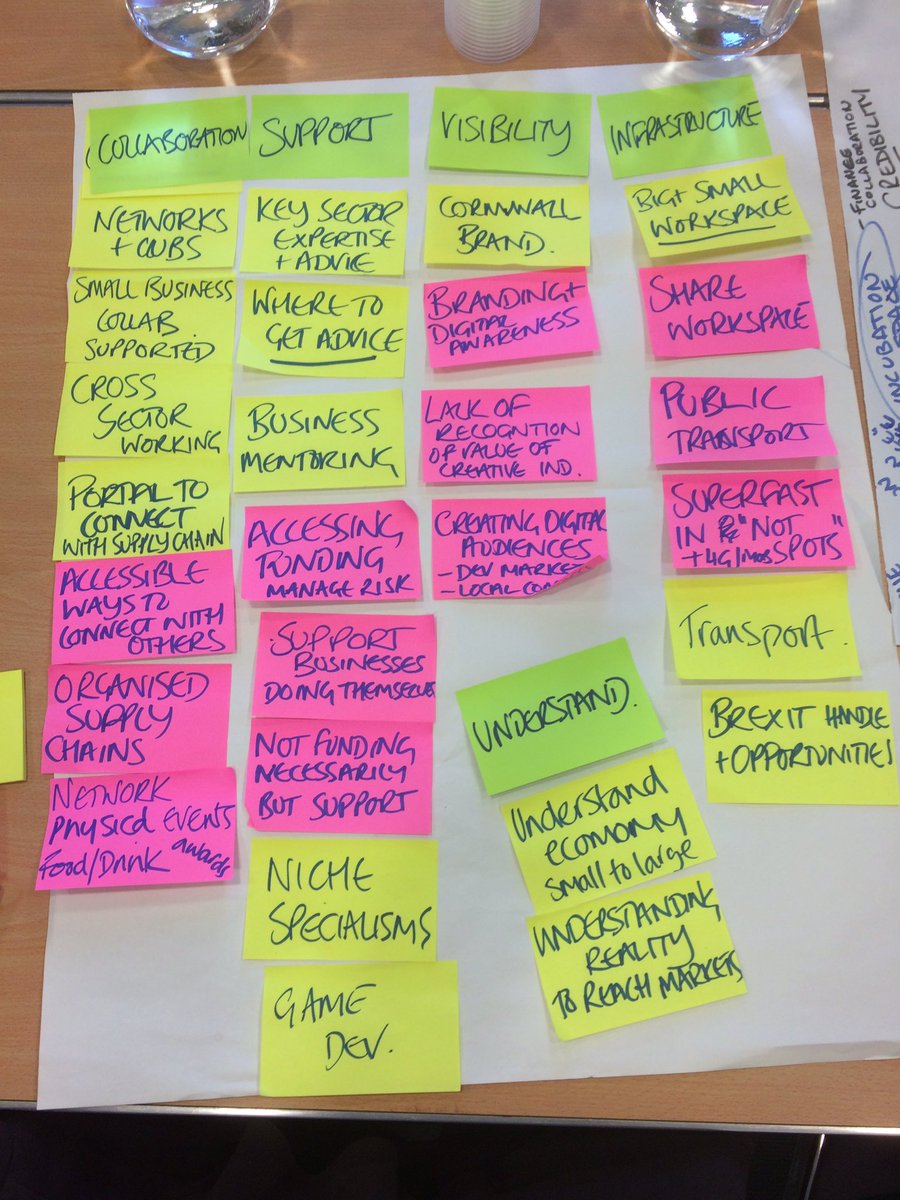 COLLABORATION
NETWORKS
+ CLUBS
SMALL BUSINESS
COLLAB
SUPPORTED
CROSS
SECTOR
WORKING
PORTAL TO
CONNECT
WITH SUPPLY CHAIN
ACCESSIBLE
WAYS TO
CONNECT WITH
OTHERS
ORGANISED
SUPPLY
CHAINS
NETWORK
Physical EVENTS
Food/Drink awards
SUPPORT
KEY SECTOR
EXPERTISE
+ ADVICE
WHERE TO
GET ADVICE
BUSINESS
MENTORING
ACCESSING
FUNDING
MANAGE RISK
SUPPORT
BUSINESSES
DOING THEMSELVES
NOT FUNDING
NECESSARILY
BUT SUPPORT
NICHE
SPECIALISMS
GAME
DEV.
VISIBILITY
CORNWALL
BRAND.
BRANDING +
DIGITAL
AWARENESS
LACK OF
RECOGNTION
OF VALUE OF
CREATIVE IND.
CREATING DIGITAL
AUDIENCES
- DEV MARKET
- LOCAL
UNDERSTAND.
Understand
economy
small to large
UNDERSTANDING
REALITY
TO REACH MARKETS
INFRASTRUCTURE
BIG + SMALL
WORKSPACE
SHARE
WORKSPACE
PUBLIC
TRANSPORT
SUPERFAST
IN "NOT
+4G/ SPOTS"
Transport.
BREXIT HANDLE
+ OPPORTUNITIES
FINANCE
COLLABORATION
CREDIBILITY
INCUBATION